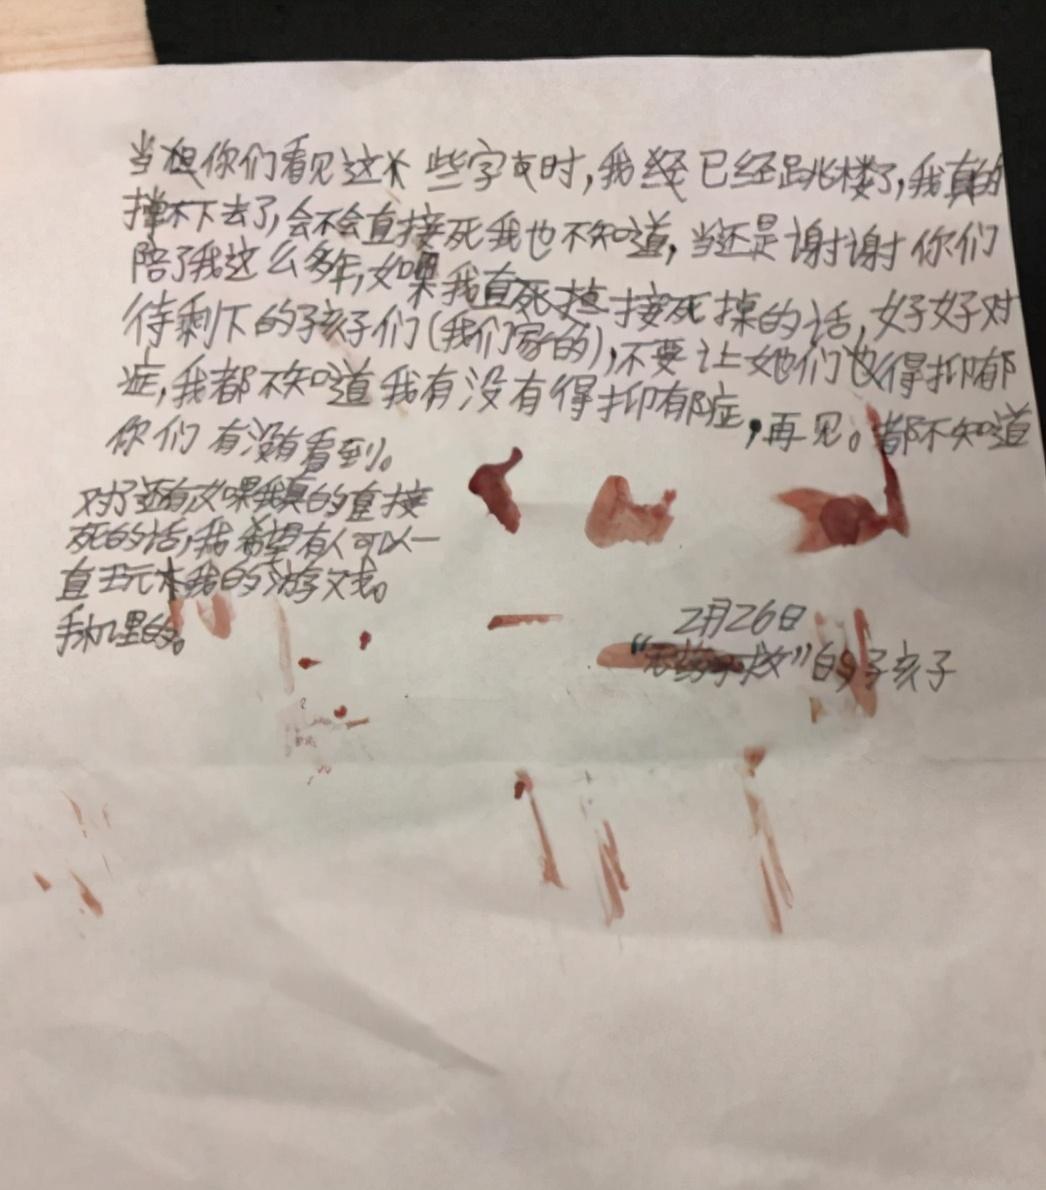 当你们看见这些字时，我已经跳楼了，我真的
撑不下去了，会不会直接死我也不知道，当还是谢谢你们
陪了我这么多年，如果我直接死掉的话，好好对
待剩下的孩子们（我们家的），不要让她们也得抑郁
症，我都不知道我有没有得抑郁症，再见。都不知道
你们有没有看到。
对了还有如果我真的直接
死的话，我希望有人可以一
直玩我的游戏。
手机里的。
2月26日
“无药可救”的孩子